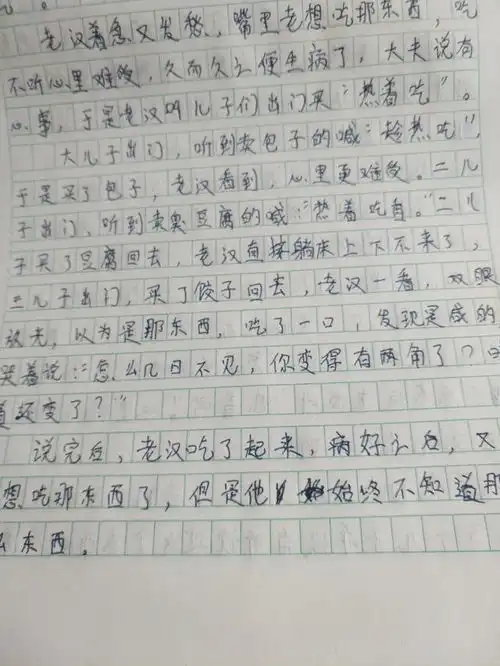 。
老汉着急又发愁，嘴里老想吃那东西，吃
不听心里难受，久而久之便生病了，大夫说有
心事，于是老汉叫儿子们出门买“热着吃”。
大儿子出门，听到卖包子的喊：“趁热吃”，
于是买了包子，老汉看到，心里更难受。二儿
子出门、听到卖臭豆腐的喊：“热着吃自。”二儿
子买了豆腐回去，老汉直接躺床上下不来了，
三儿子出门，买了饺子回去，老汉一看，双眼
放光，以为是那东西，吃了一口，发现是咸的
哭着说：“怎么几日不见，你变得有两角了？口
道还变了？”
说完后，老汉吃了起来，病好之后，又
想吃那东西了，但是他始终不知道那
么东西。